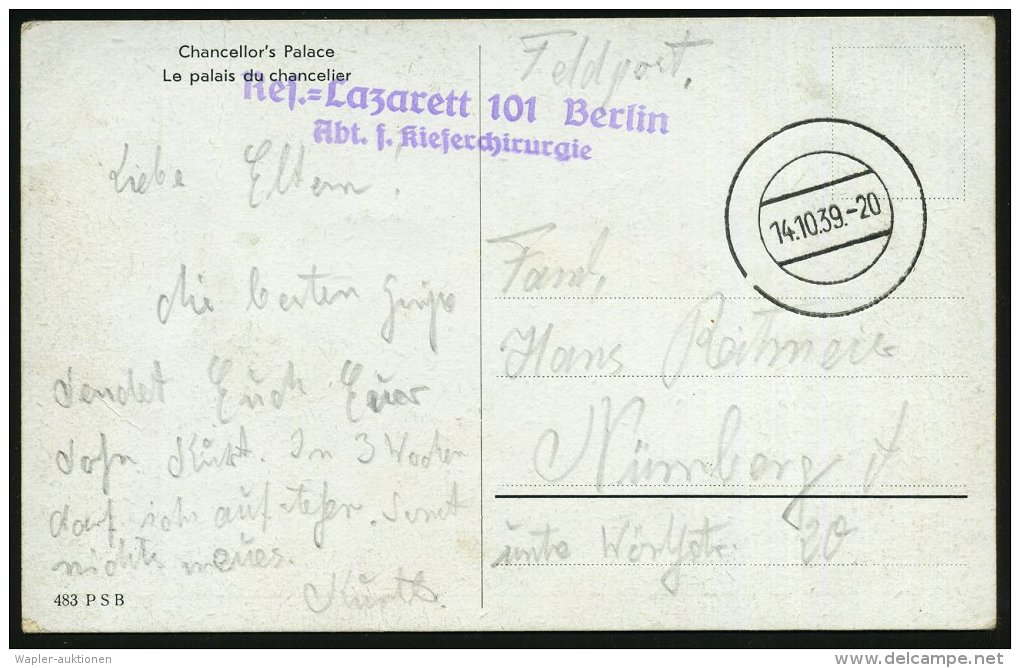 Chancellor's Palace
Le palais du chancelier
Res.=Lazarett 101 Berlin
Abt. f. Kieferchirurgie
Feldpost.
14.10.39.-20
Liebe Eltern!
die besten Grüße
sendet Euch Euer
Sohn Kurt. In 3 Wochen
darf ich aufstehen. Sonst
nichts neues.
Kurt.
Fam.
Hans
Nürnberg
unte Wörthstr. 20
483 PSB
Wapler-auktionen
delcampe.net